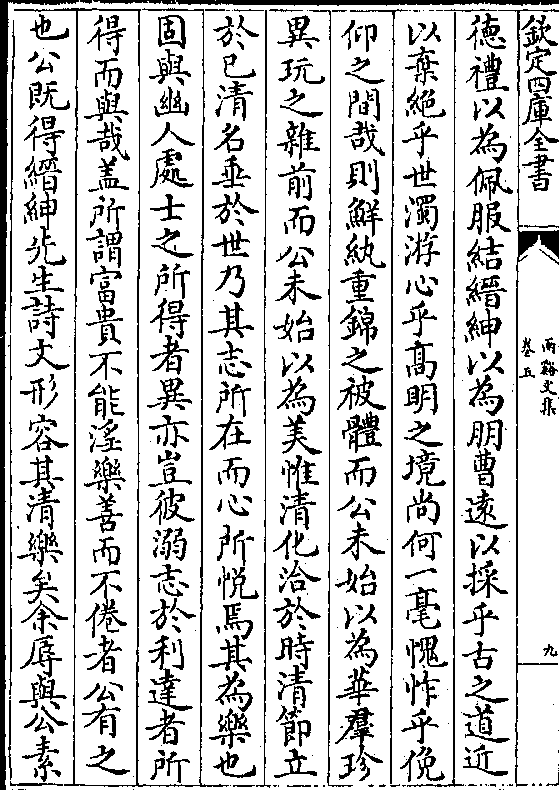 欽定四庫全書
兩谿文集
卷五
九
德禮以為佩服結縉紳以為朋曹遠以採乎古之道近
以棄絶乎世濁游心乎髙明之境尚何一毫愧怍乎俛
仰之間哉則鮮紈重錦之被體而公未始以為華羣珍
異玩之雜前而公未始以為美惟清化洽於時清節立
於已清名垂於世乃其志所在而心所悦焉其為樂也
固與幽人處士之所得者異亦豈彼溺志於利達者所
得而與哉盖所謂富貴不能淫樂善而不倦者公有之
也公既得縉紳先生詩文形容其清樂矣余辱與公素